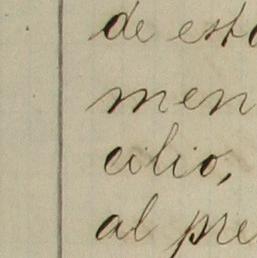 de esto
men
cilio,
al pre